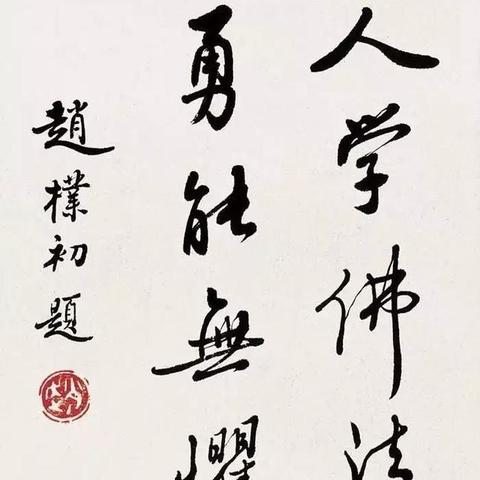 人学佛法
勇能無懼
趙樸初題